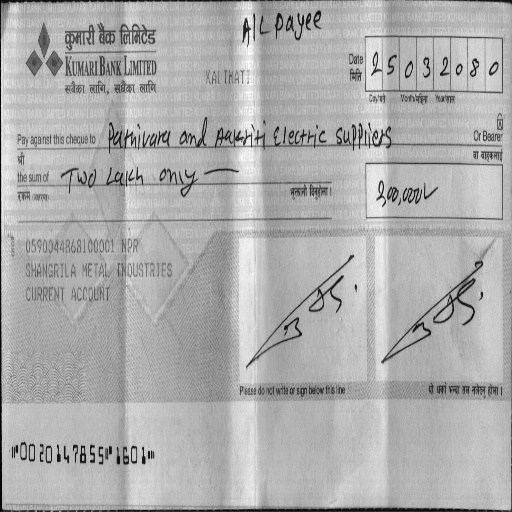 A/C Payee
कुमारी बैंक लिमिटेड
KUMARI BANK LIMITED
सबैका लागि, सधैंका लागि
KALIMATI
Date
मिति
25032080
Day/गते Month/महिना Year/साल
Pay against this cheque to Pathivara and Aakriti Electric suppliers Or Bearer
श्री वा वाहकलाई
the sum of Two Lakh only
रकम भुक्तानी दिनुहोला ।
200,000/-
0590044868100001 NPR
SHANGRILA METAL INDUSTRIES
CURRENT ACCOUNT
Please do not write or sign below this line
यो धर्का भन्दा तल नलेख्नु होला ।
⑈0020147855⑈1601⑈